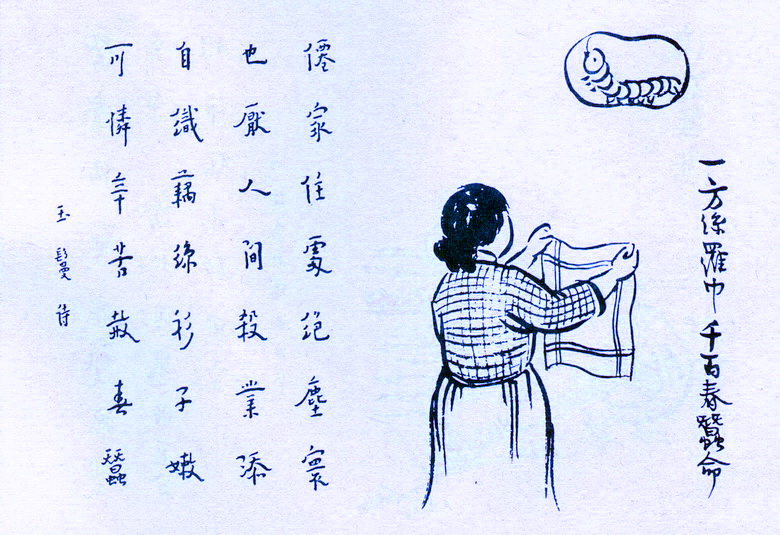 一方絲羅巾千百春蠶命
僊家住處絕塵寰
也厭人間殺業添
自織藕絲衫子嫩
可憐辛苦赦春蠶
玉鬘詩